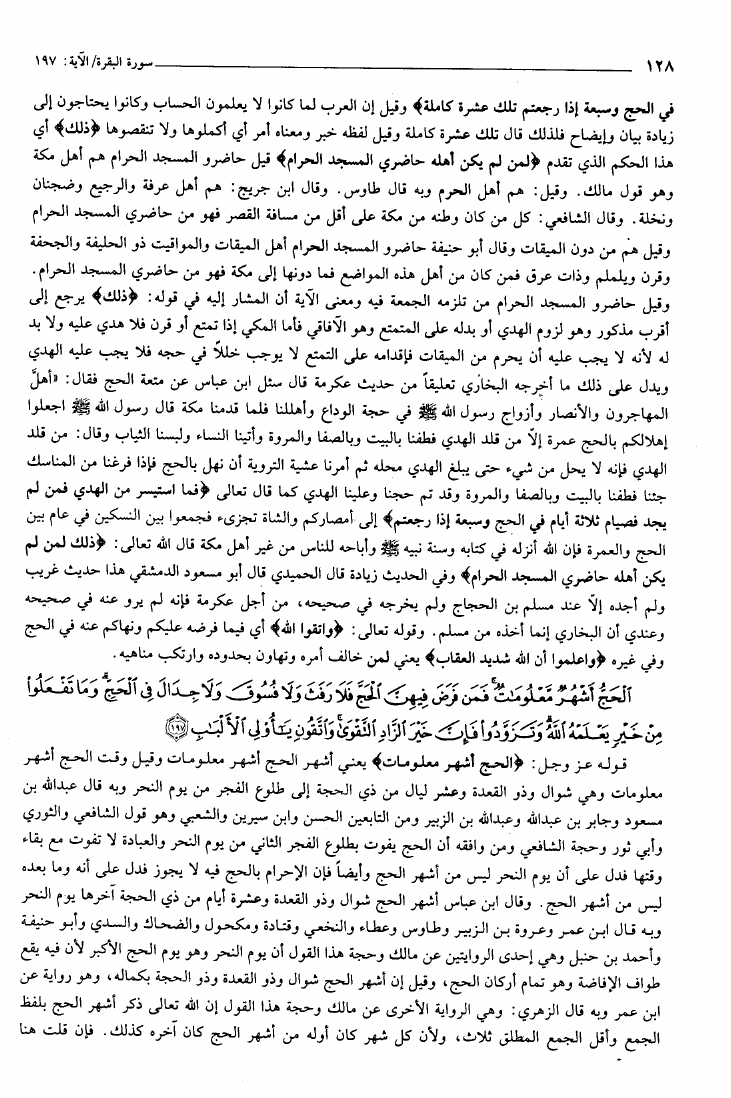 ١٢٨ سورة البقرة/ الآية: ١٩٧
في الحج وسبعة إذا رجعتم تلك عشرة كاملة﴾ وقيل إن العرب لما كانوا لا يعلمون الحساب وكانوا يحتاجون إلى
زيادة بيان وإيضاح فلذلك قال تلك عشرة كاملة وقيل لفظه خبر ومعناه أمر أي أكملوها ولا تنقصوها ﴿ذلك﴾ أي
هذا الحكم الذي تقدم ﴿لمن لم يكن أهله حاضري المسجد الحرام﴾ قيل حاضرو المسجد الحرام هم أهل مكة
وهو قول مالك. وقيل: هم أهل الحرم وبه قال طاوس. وقال ابن جريج: هم أهل عرفة والرجيع وضجنان
ونخلة. وقال الشافعي: كل من كان وطنه من مكة على أقل من مسافة القصر فهو من حاضري المسجد الحرام
وقيل هم من دون الميقات وقال أبو حنيفة حاضرو المسجد الحرام أهل الميقات والمواقيت ذو الحليفة والجحفة
وقرن ويلملم وذات عرق فمن كان من أهل هذه المواضع فما دونها إلى مكة فهو من حاضري المسجد الحرام.
وقيل حاضرو المسجد الحرام من تلزمه الجمعة فيه ومعنى الآية أن المشار إليه في قوله: ﴿ذلك﴾ يرجع إلى
أقرب مذكور وهو لزوم الهدي أو بدله على المتمتع وهو الآفاقي فأما المكي إذا تمتع أو قرن فلا هدي عليه ولا بد
له لأنه لا يجب عليه أن يحرم من الميقات فإقدامه على التمتع لا يوجب خللاً في حجه فلا يجب عليه الهدي
ويدل على ذلك ما أخرجه البخاري تعليقاً من حديث عكرمة قال سئل ابن عباس عن متعة الحج فقال: «أهلَّ
المهاجرون والأنصار وأزواج رسول الله ﷺ في حجة الوداع وأهللنا فلما قدمنا مكة قال رسول الله ﷺ اجعلوا
إهلالكم بالحج عمرة إلّا من قلد الهدي فطفنا بالبيت وبالصفا والمروة وأتينا النساء ولبسنا الثياب وقال: من قلد
الهدي فإنه لا يحل من شيء حتى يبلغ الهدي محله ثم أمرنا عشية التروية أن نهل بالحج فإذا فرغنا من المناسك
جئنا فطفنا بالبيت وبالصفا والمروة وقد تم حجنا وعلينا الهدي كما قال تعالى ﴿فما استيسر من الهدي فمن لم
يجد فصيام ثلاثة أيام في الحج وسبعة إذا رجعتم﴾ إلى أمصاركم والشاة تجزىء فجمعوا بين النسكين في عام بين
الحج والعمرة فإن الله أنزله في كتابه وسنة نبيه ﷺ وأباحه للناس من غير أهل مكة قال الله تعالى: ﴿ذلك لمن لم
يكن أهله حاضري المسجد الحرام﴾ وفي الحديث زيادة قال الحميدي قال أبو مسعود الدمشقي هذا حديث غريب
ولم أجده إلّا عند مسلم بن الحجاج ولم يخرجه في صحيحه، من أجل عكرمة فإنه لم يرو عنه في صحيحه
وعندي أن البخاري إنما أخذه من مسلم. وقوله تعالى: ﴿واتقوا الله﴾ أي فيما فرضه عليكم ونهاكم عنه في الحج
وفي غيره ﴿واعلموا أن الله شديد العقاب﴾ يعني لمن خالف أمره وتهاون بحدوده وارتكب مناهيه.
اَلْحَجُّ أَشْهُرٌ مَّعْلُومَاتٌ فَمَن فَرَضَ فِيهِنَّ الْحَجَّ فَلَا رَفَثَ وَلَا فُسُوقَ وَلَا جِدَالَ فِي الْحَجِّ وَمَا تَفْعَلُوا
مِنْ خَيْرٍ يَعْلَمْهُ اللَّهُ وَتَزَوَّدُوا فَإِنَّ خَيْرَ الزَّادِ التَّقْوَى وَاتَّقُونِ يَا أُولِي الْأَلْبَابِ ﴿١٩٧﴾
قوله عز وجل: ﴿الحج أشهر معلومات﴾ يعني أشهر الحج أشهر معلومات وقيل وقت الحج أشهر
معلومات وهي شوال وذو القعدة وعشر ليال من ذي الحجة إلى طلوع الفجر من يوم النحر وبه قال عبدالله بن
مسعود وجابر بن عبدالله وعبدالله بن الزبير ومن التابعين الحسن وابن سيرين والشعبي وهو قول الشافعي والثوري
وأبي ثور وحجة الشافعي ومن وافقه أن الحج يفوت بطلوع الفجر الثاني من يوم النحر والعبادة لا تفوت مع بقاء
وقتها فدل على أن يوم النحر ليس من أشهر الحج وأيضاً فإن الإحرام بالحج فيه لا يجوز فدل على أنه وما بعده
ليس من أشهر الحج. وقال ابن عباس أشهر الحج شوال وذو القعدة وعشرة أيام من ذي الحجة آخرها يوم النحر
وبه قال ابن عمر وعروة بن الزبير وطاوس وعطاء والنخعي وقتادة ومكحول والضحاك والسدي وأبو حنيفة
وأحمد بن حنبل وهي إحدى الروايتين عن مالك وحجة هذا القول أن يوم النحر وهو يوم الحج الأكبر لأن فيه يقع
طواف الإفاضة وهو تمام أركان الحج، وقيل إن أشهر الحج شوال وذو القعدة وذو الحجة بكماله، وهو رواية عن
ابن عمر وبه قال الزهري: وهي الرواية الأخرى عن مالك وحجة هذا القول إن الله تعالى ذكر أشهر الحج بلفظ
الجمع وأقل الجمع المطلق ثلاث، ولأن كل شهر كان أوله من أشهر الحج كان آخره كذلك. فإن قلت هنا